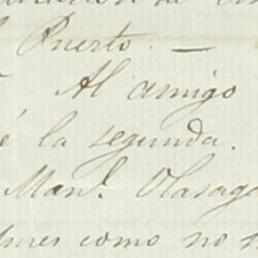 Puerto. —
Al amigo
é la segunda.
Man.l Olasaga
como no